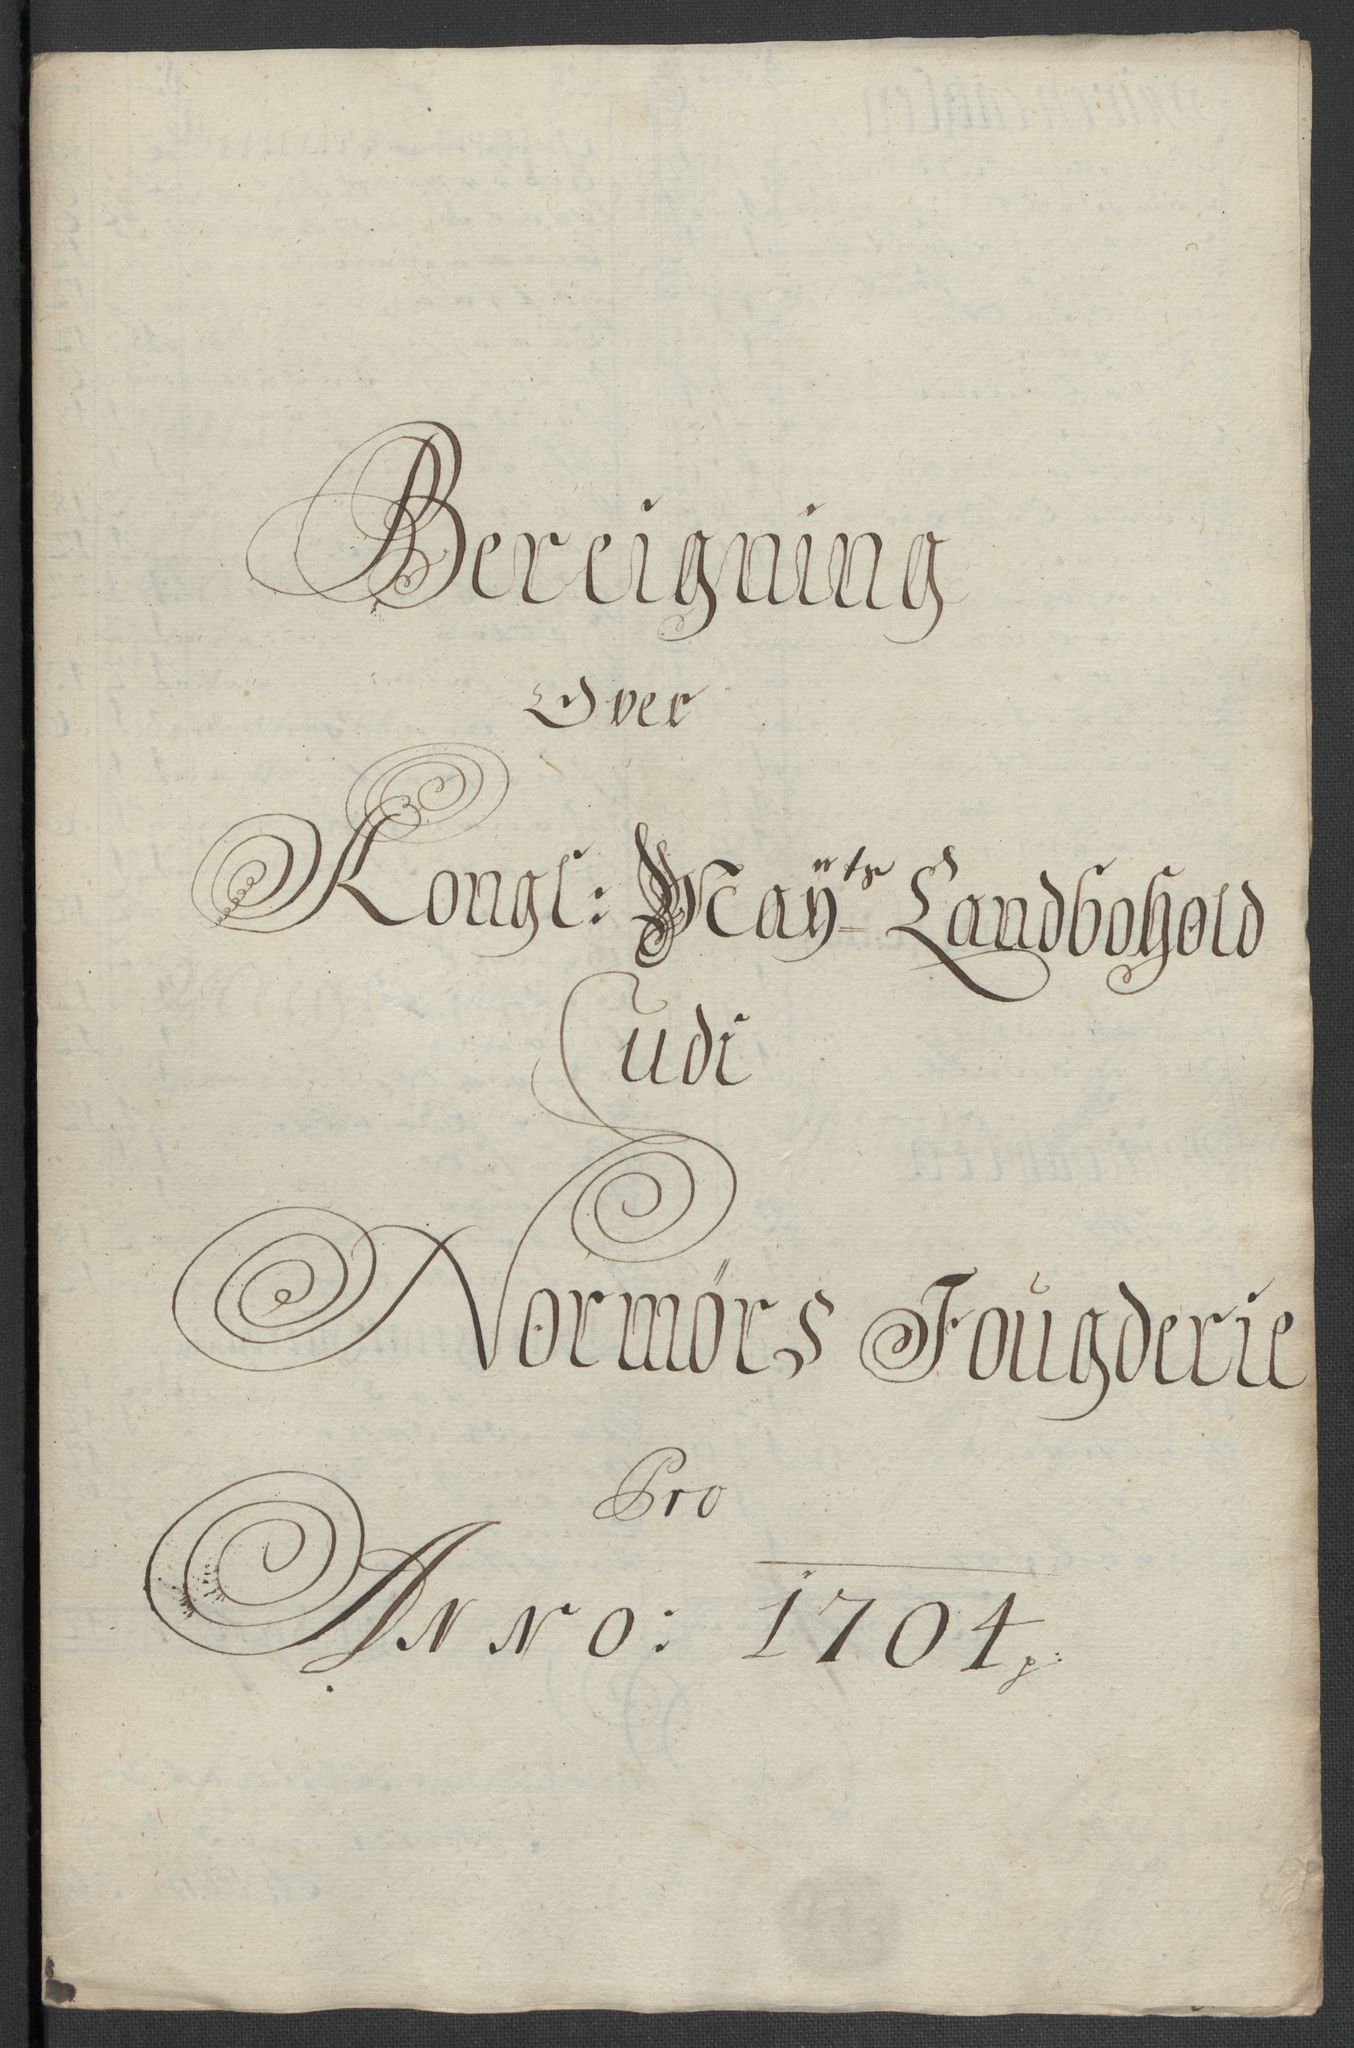 Bereigning
Over
Kongl: Maÿts Landbohold
udi
Normørs Fougderie
Pro
Anno: 1704